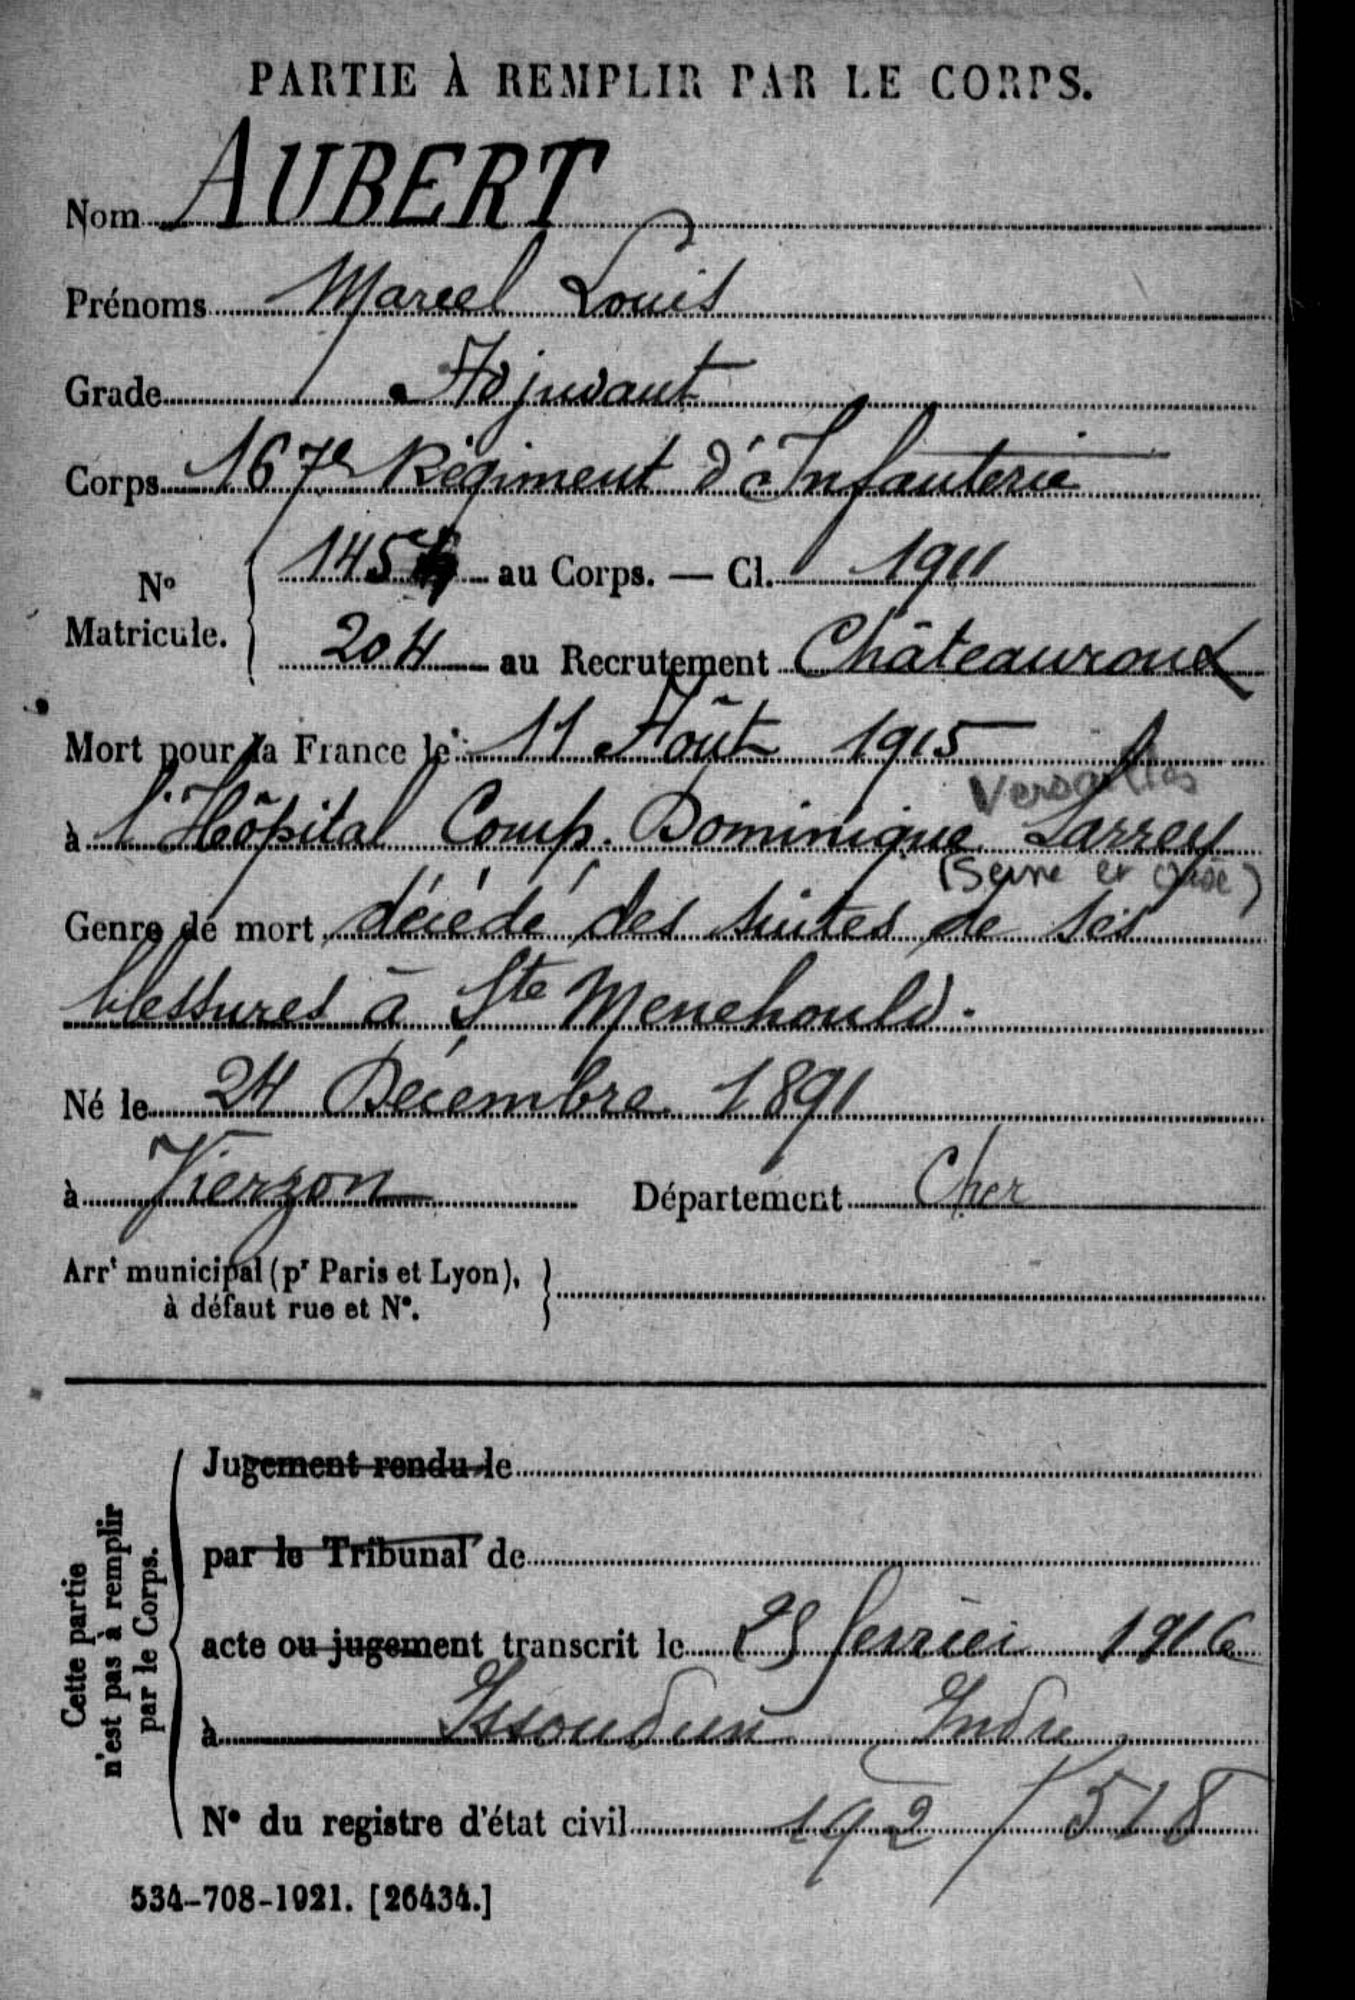 PARTIE À REMPLIR PAR LE CORPS.
Nom AUBERT
Prénoms Marcel Louis
Grade Adjudant
Corps 167e Régiment d'Infanterie
No Matricule. { 1454 au Corps. — Cl. 1911
204 au Recrutement Châteauroux
Mort pour la France le 11 Août 1915
Versailles
à l'Hôpital Comp. Dominique Larrey
(Seine et Oise)
Genre de mort décédé des suites de ses
blessures à Ste Menehould.
Né le 24 Décembre 1891
à Vierzon Département Cher
Arrt municipal (pr Paris et Lyon), }
à défaut rue et No.
Cette partie
n'est pas à remplir
par le Corps.
Jugement rendu le
par le Tribunal de
acte ou jugement transcrit le 25 février 1916
à Issoudun Indre
No du registre d'état civil 192 / 518
534-708-1921. [26434.]